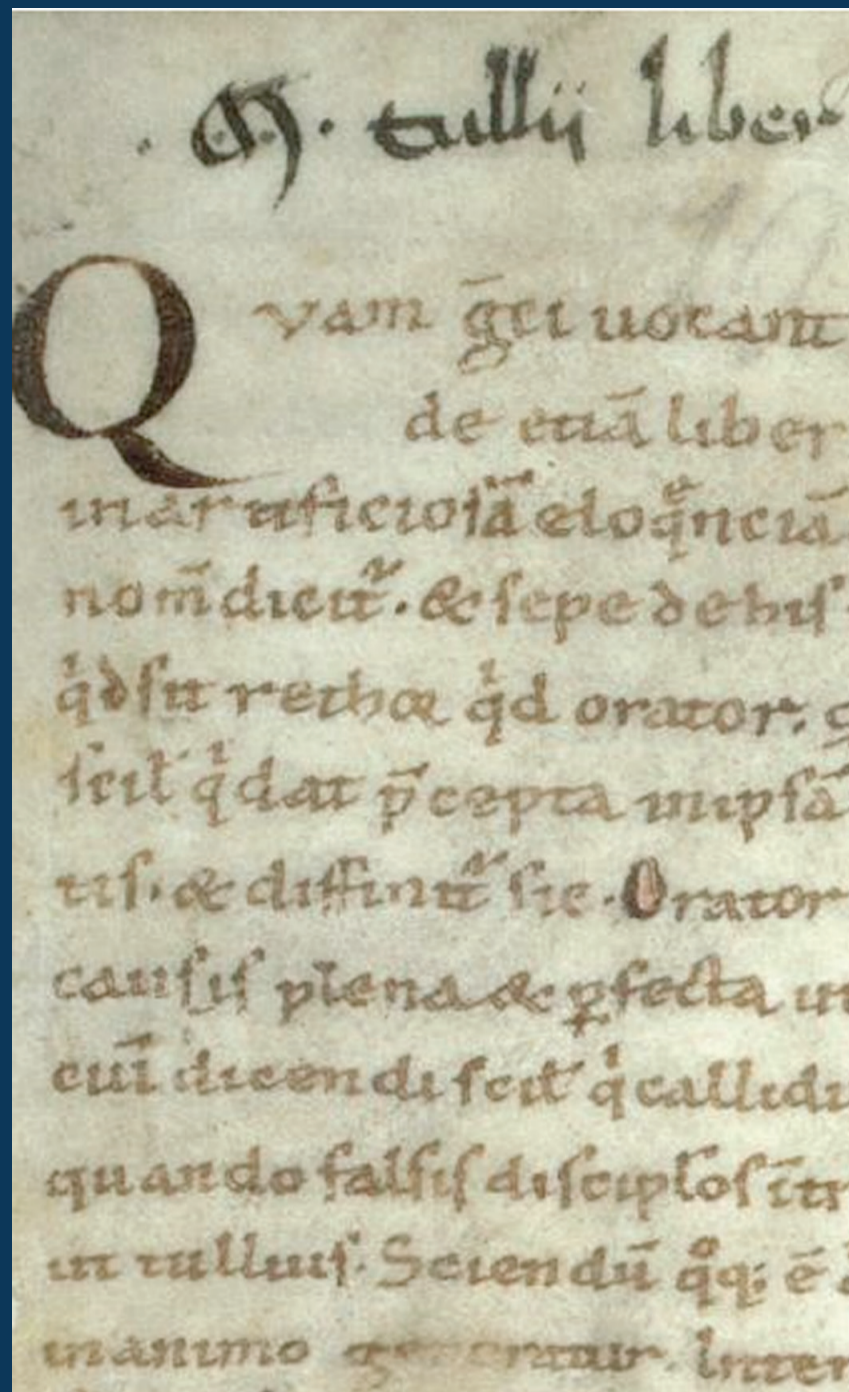 . M. tullii liber
Quam ḡci uocant
de etiā liber
inartificiosā eloqͤnciā
nom̄ dicit᷑. & sepe de his
qͥd sit rethor qͥd orator.
scil̄ qͥ dat p̄cepta in ipsā
tis. & diffinit᷑ sic. Orator
causis plena & ꝑfecta ut
cuī dicendi scil̄ qͥ callidi
quando falsis discipl̄os īt
ut tullius. Sciendū qͦq; ē
in animo generatur. Inter